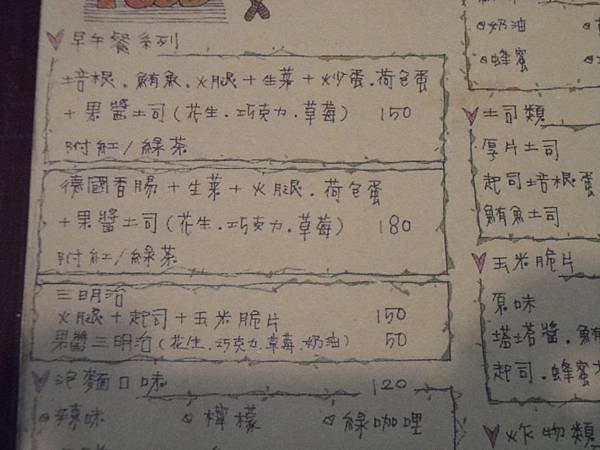 早午餐系列
培根.鮪魚.火腿+生菜+炒蛋.荷包蛋
+果醬土司(花生.巧克力.草莓) 150
附紅/綠茶
德國香腸+生菜+火腿.荷包蛋
+果醬土司(花生.巧克力.草莓) 180
附紅/綠茶
三明治
火腿+起司+玉米脆片 150
果醬三明治(花生.巧克力.草莓.奶油) 50
泡麵口味 120
辣味 檸檬 綠咖哩
奶油
蜂蜜
土司類
厚片土司
起司培根蛋
鮪魚土司
玉米脆片
原味
塔塔醬.鮪
起司.蜂蜜
炸物類